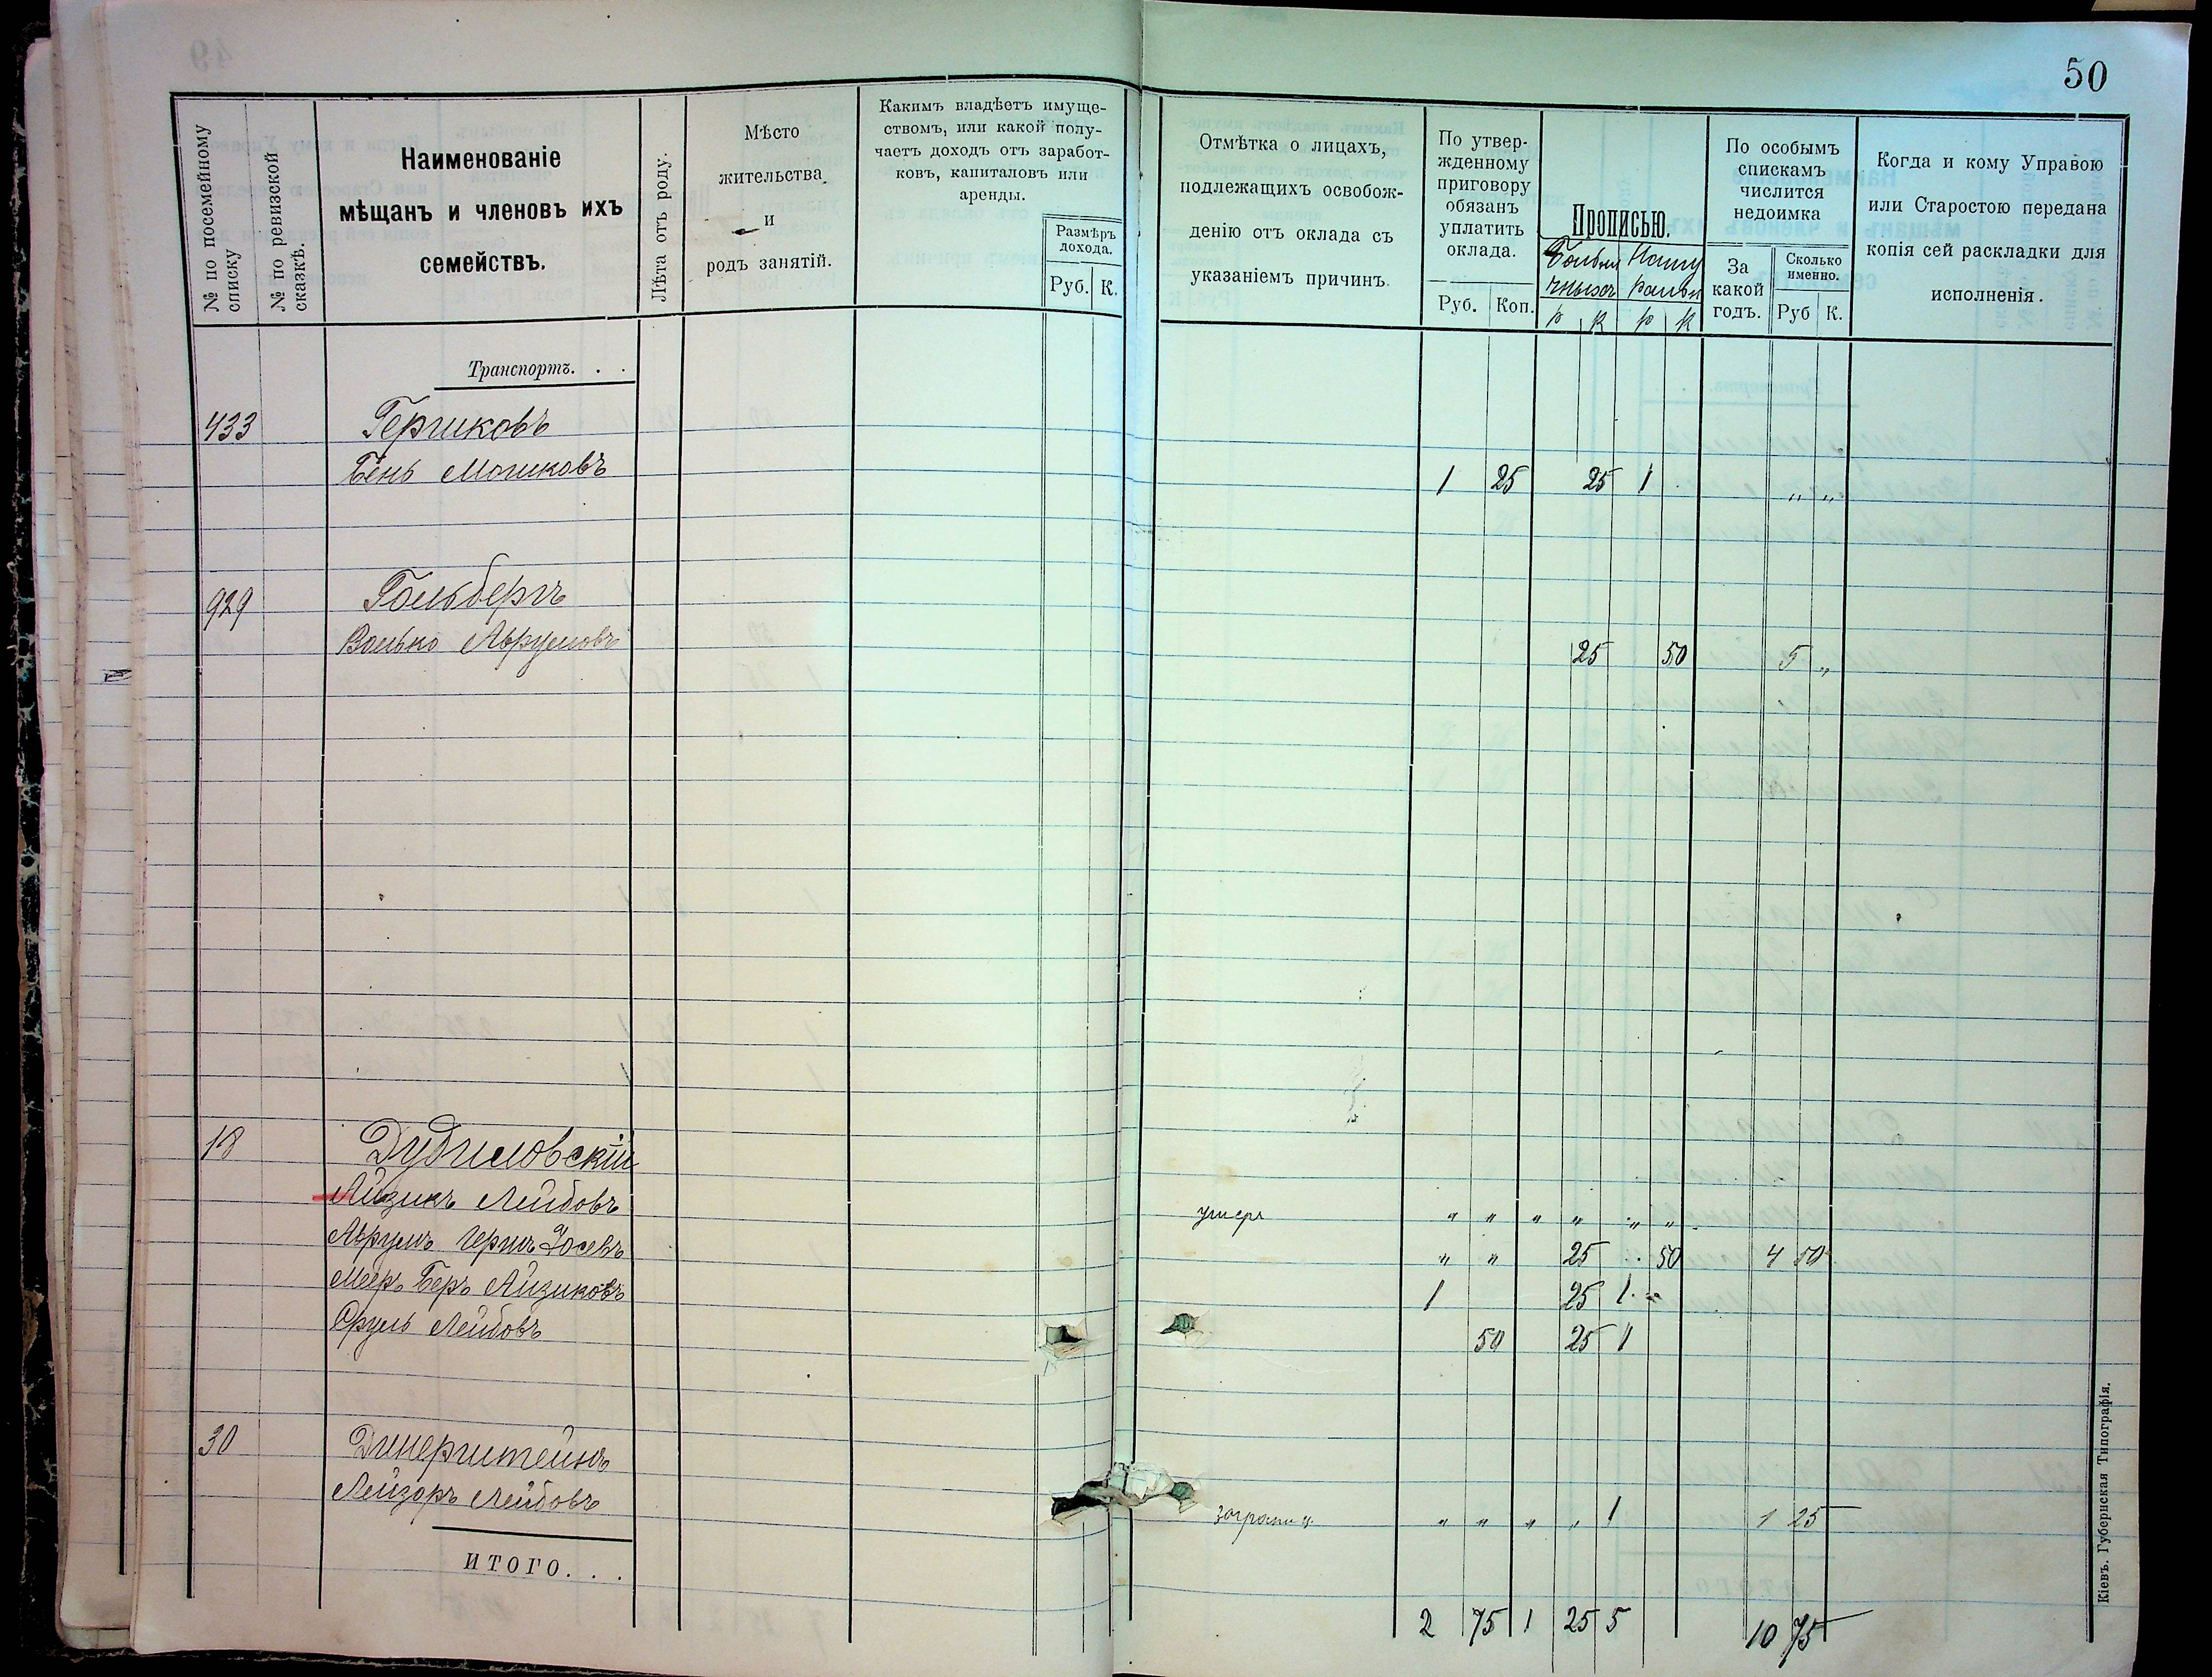 50
№ по посемейному списку
№ по ревизской сказкѣ.
Наименованіе
мѣщанъ и членовъ ихъ
семействъ.
Лѣта отъ роду.
Мѣсто
жительства
и
родъ занятій.
Какимъ владѣетъ имуще-
ствомъ, или какой полу-
чаетъ доходъ отъ заработ-
ковъ, капиталовъ или
аренды.
Размѣръ
дохода.
Руб. К.
Отмѣтка о лицахъ,
подлежащихъ освобож-
денію отъ оклада съ
указаніемъ причинъ.
По утвер-
жденному
приговору
обязанъ
уплатить
оклада.
Руб. Коп.
Прописью.
р к р к
По особымъ
спискамъ
числится
недоимка
За
какой
годъ.
Сколько
именно.
Руб К.
Когда и кому Управою
или Старостою передана
копія сей раскладки для
исполненія.
Транспортъ. . .
433 Гершковъ
Бень Мошковъ 1 25 25 1 „ „
929 Гольбергъ
Волько Аврумовъ 25 50 5 „
18 Дудиловскій
Айзикъ Лейбовъ умеръ „ „ „ „ „ „
Аврумъ Герш Іосевъ „ „ 25 50 4 50
Мееръ Беръ Айзиковъ 1 25 1
Сруль Лейбовъ 50 25 1
30 Динерштейнъ
Лейзоръ Лейбовъ заграниц „ „ „ „ 1 1 25
ИТОГО. . .
2 75 1 25 5 10 75
Кіевъ. Губернская Типографія.